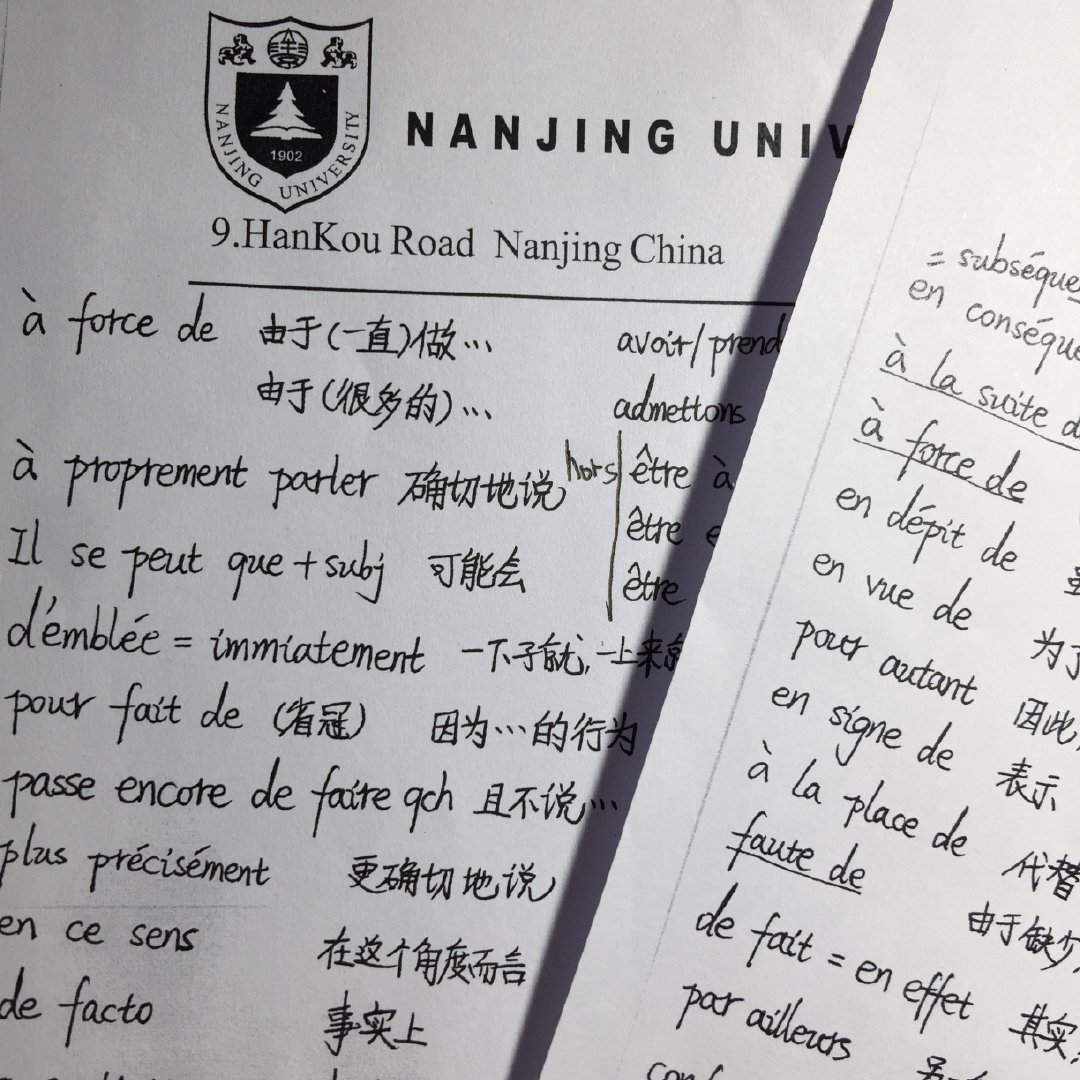 NANJING UNIVERSITY
1902
NANJING
9.HanKou Road Nanjing China
à force de 由于(一直)做…
由于(很多的)…
à proprement parler 确切地说
Il se peut que + subj 可能会
d'émblée = immiatement 一下子就,一上来
pour fait de (省冠) 因为…的行为
passe encore de faire qch 且不说…
plus précisément 更确切地说
en ce sens 在这个角度而言
de facto 事实上
avoir/prend
admettons
hors être à
être
être
= subséque
en conséque
à la suite d
à force de
en dépit de
en vue de 为了
pour autant 因此
en signe de 表示
à la place de 代替
faute de 由于缺少
de fait = en effet 其实
par ailleurs